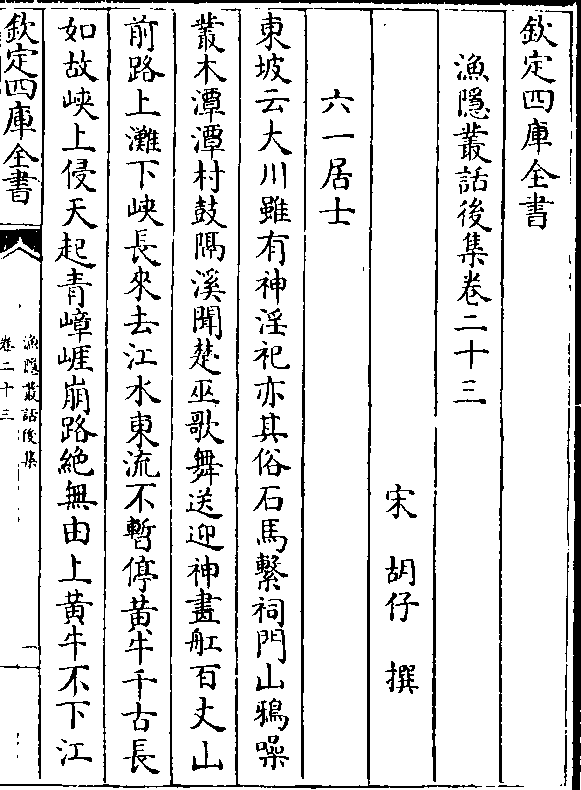 欽定四庫全書
漁隱叢話後集卷二十三
宋 胡仔 撰
六一居士
東坡云大川雖有神淫祀亦其俗石馬繫祠門山鴉噪
叢木潭潭村鼓隔溪聞楚巫歌舞送迎神畫舡百丈山
前路上灘下峽長來去江水東流不暫停黄牛千古長
如故峽上侵天起青嶂崖崩路絶無由上黄牛不下江
欽定四庫全書
漁隱叢話後集
卷二十三
一